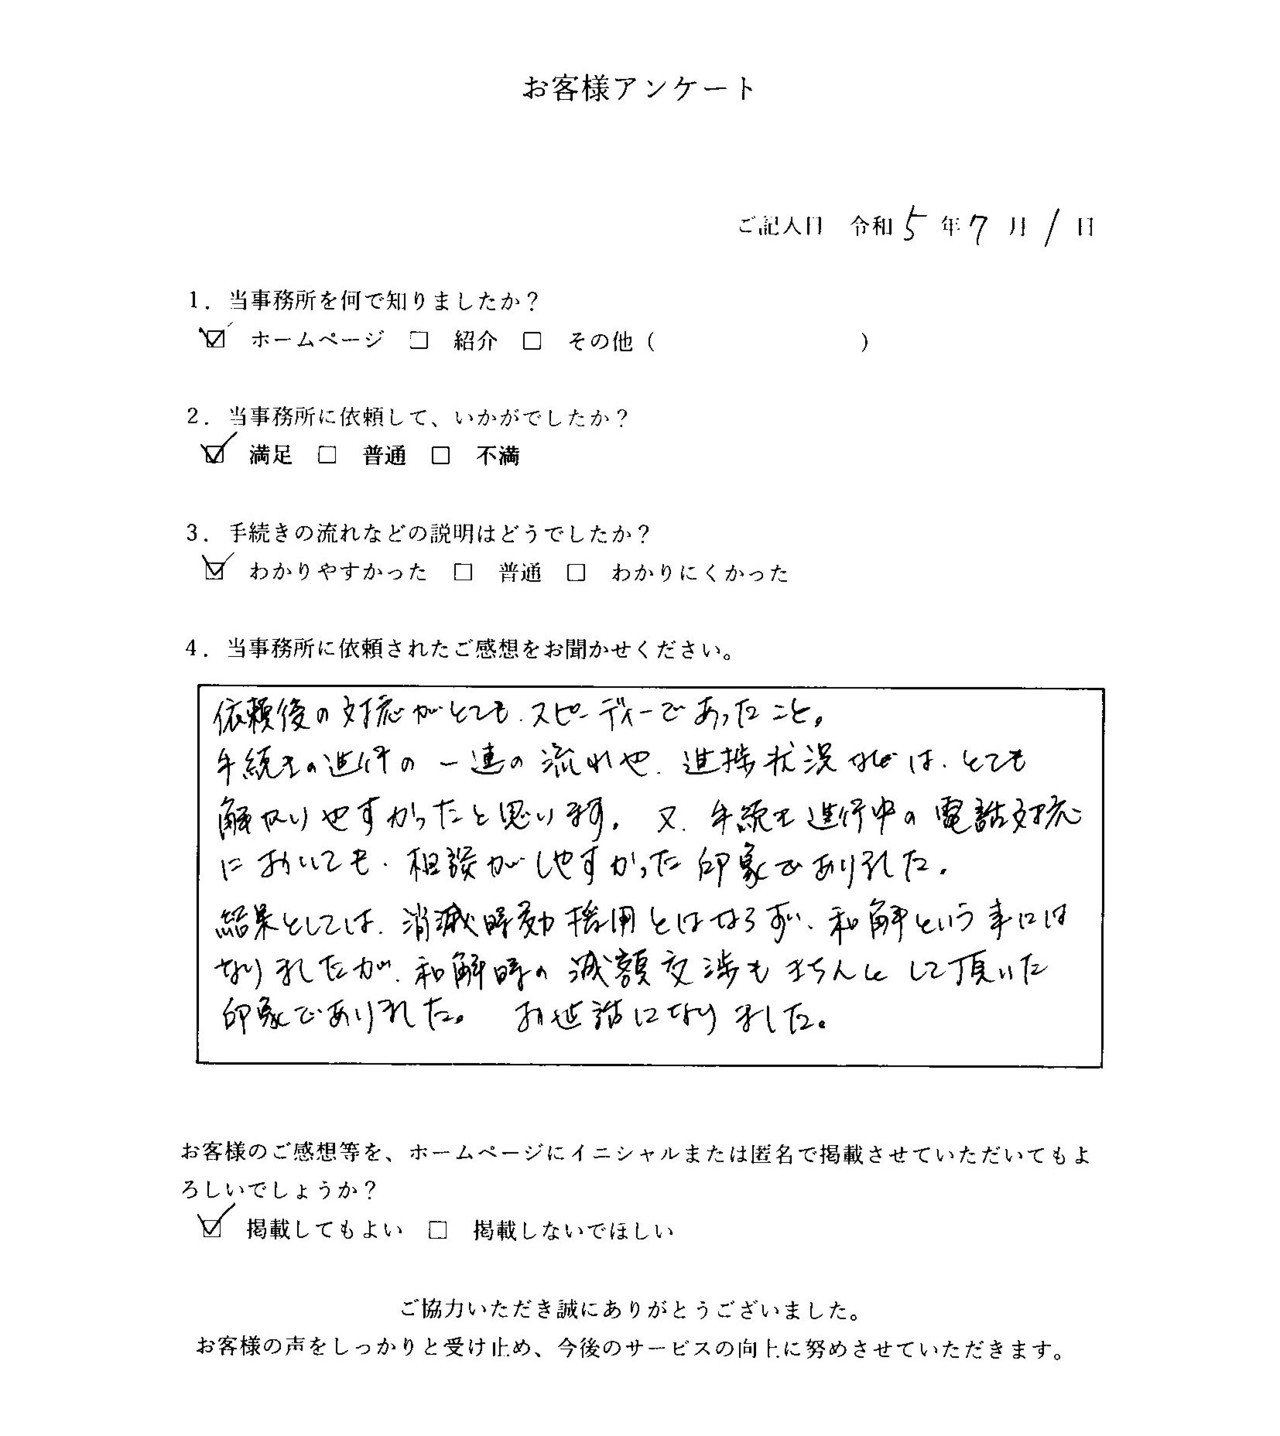 お客様アンケート
ご記入日 令和5年7月1日
1．当事務所を何で知りましたか？
☑ ホームページ □ 紹介 □ その他（ ）
2．当事務所に依頼して、いかがでしたか？
☑ 満足 □ 普通 □ 不満
3．手続きの流れなどの説明はどうでしたか？
☑ わかりやすかった □ 普通 □ わかりにくかった
4．当事務所に依頼されたご感想をお聞かせください。
依頼後の対応がとても、スピーディーであったこと。
手続きの進行の一連の流れや、進捗状況などは、とても
解かりやすかったと思います。又、手続き進行中の電話対応
においても、相談がしやすかった印象でありました。
結果としては、消滅時効援用とはならずい、和解という事には
なりましたが、和解時の減額交渉もきちんとして頂いた
印象でありました。 お世話になりました。
お客様のご感想等を、ホームページにイニシャルまたは匿名で掲載させていただいてもよ
ろしいでしょうか？
☑ 掲載してもよい □ 掲載しないでほしい
ご協力いただき誠にありがとうございました。
お客様の声をしっかりと受け止め、今後のサービスの向上に努めさせていただきます。